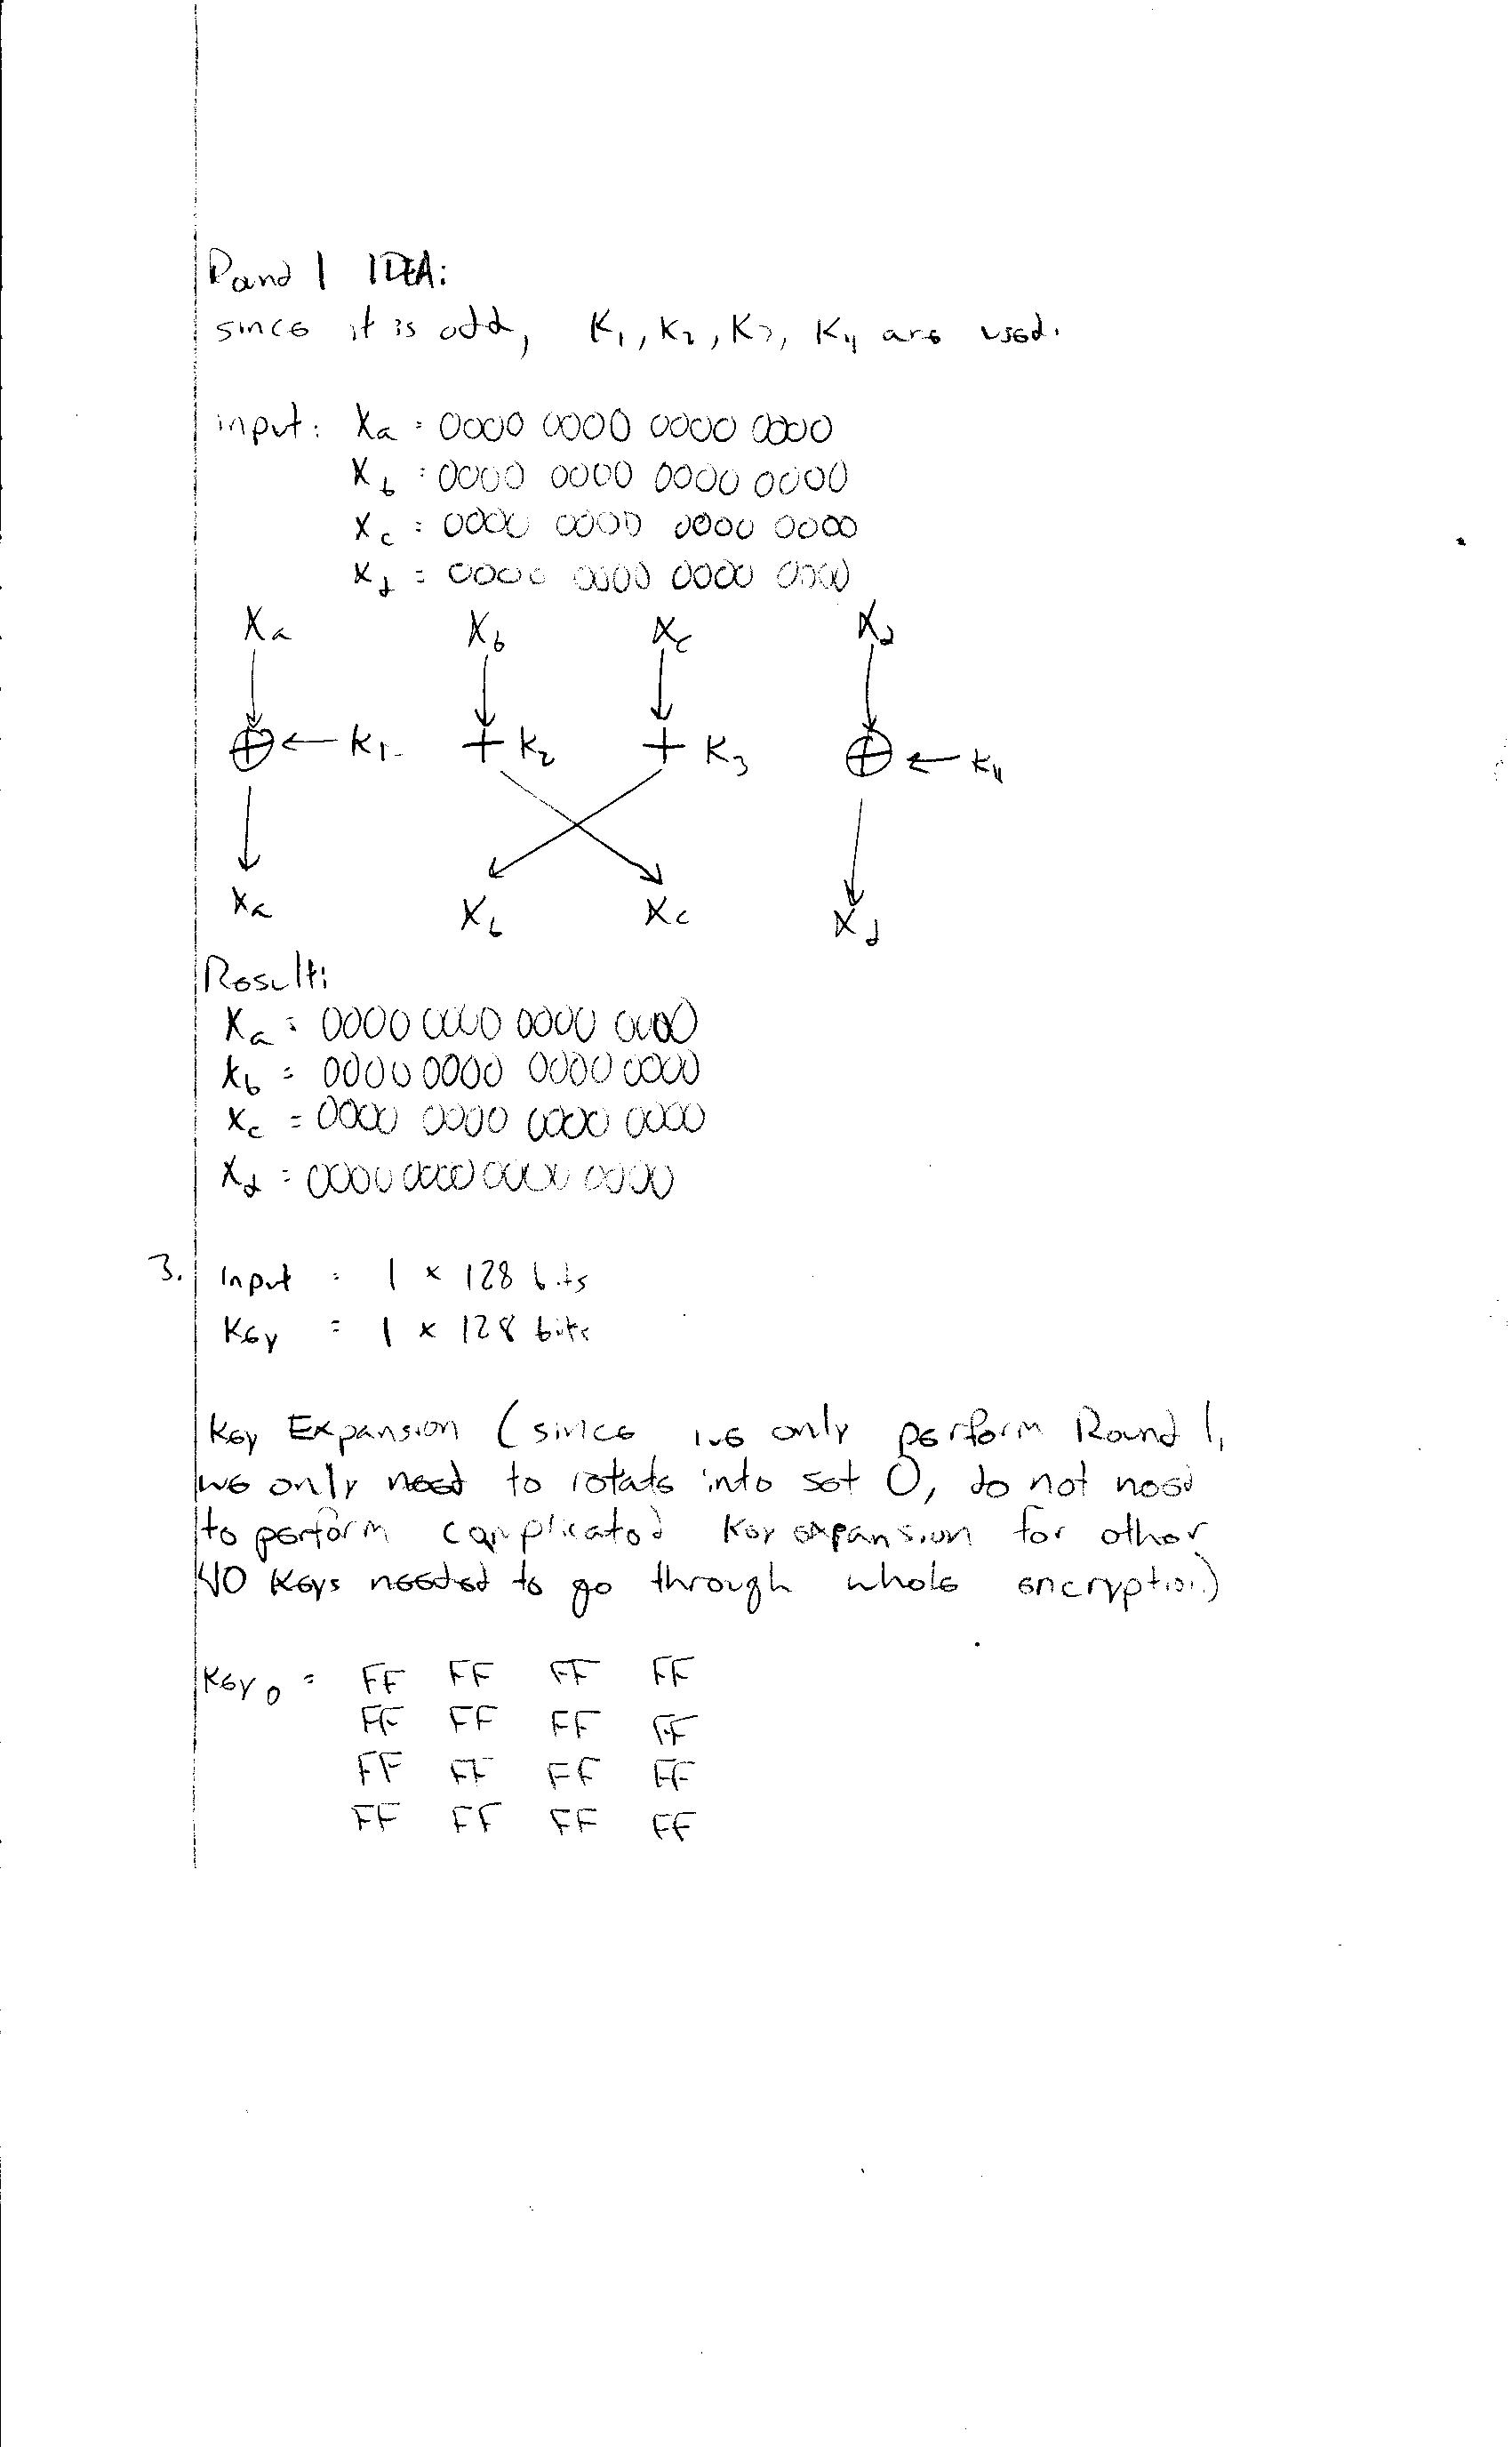 Round 1 IDEA:
since it is odd, K1, K2, K3, K4 are used.
input: Xa = 0000 0000 0000 0000
Xb = 0000 0000 0000 0000
Xc = 0000 0000 0000 0000
Xd = 0000 0000 0000 0000
Xa Xb Xc Xd
⊕ ← K1 + K2 + K3 ⊕ ← K4
Xa Xb Xc Xd
Result:
Xa = 0000 0000 0000 0000
Xb = 0000 0000 0000 0000
Xc = 0000 0000 0000 0000
Xd = 0000 0000 0000 0000
3. Input = 1 x 128 bits
Key = 1 x 128 bits
Key Expansion (since we only perform Round 1,
we only need to rotate into set 0, do not need
to perform complicated key expansion for other
40 keys needed to go through whole encryption)
Key0 = FF FF FF FF
FF FF FF FF
FF FF FF FF
FF FF FF FF